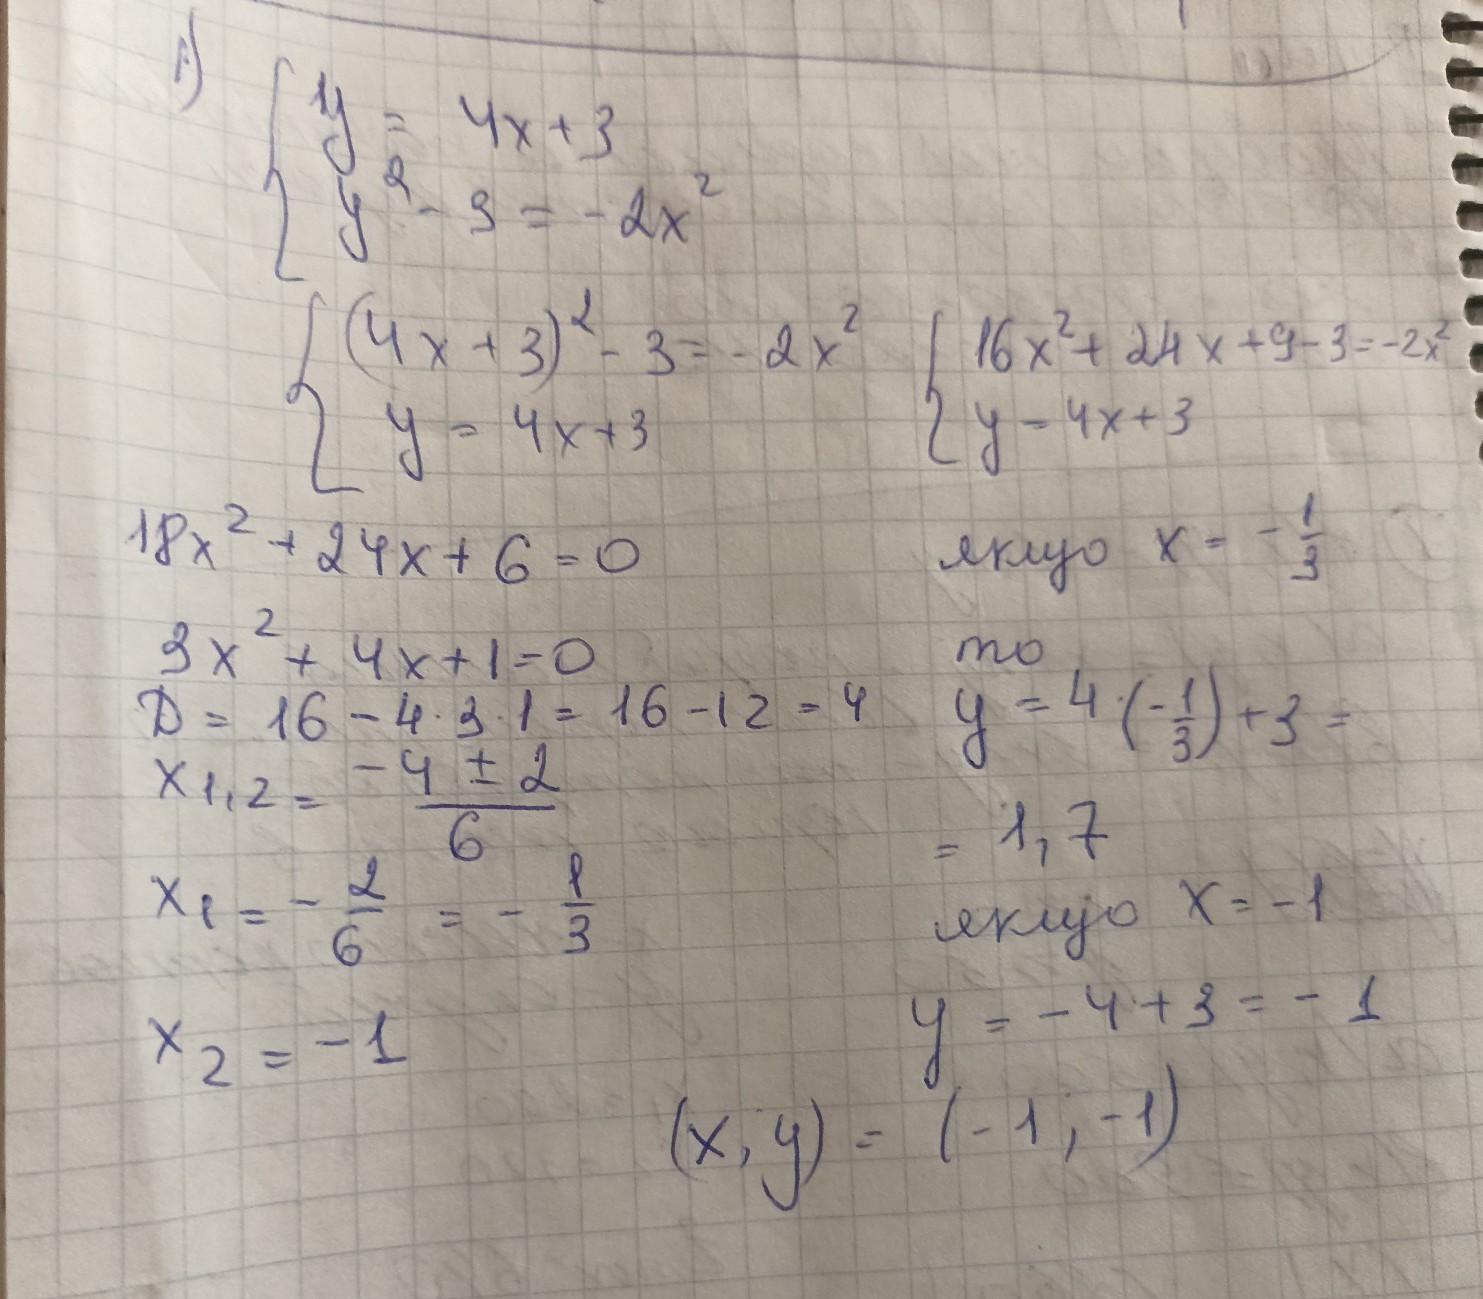 1)
y = 4x + 3
y² - 3 = -2x²
(4x + 3)² - 3 = -2x²
y = 4x + 3
16x² + 24x + 9 - 3 = -2x²
y = 4x + 3
18x² + 24x + 6 = 0
3x² + 4x + 1 = 0
D = 16 - 4·3·1 = 16 - 12 = 4
x1,2 = (-4 ± 2)/6
x1 = -2/6 = -1/3
x2 = -1
якщо x = -1/3
то
y = 4·(-1/3) + 3 =
= 1,7
якщо x = -1
y = -4 + 3 = -1
(x, y) = (-1; -1)